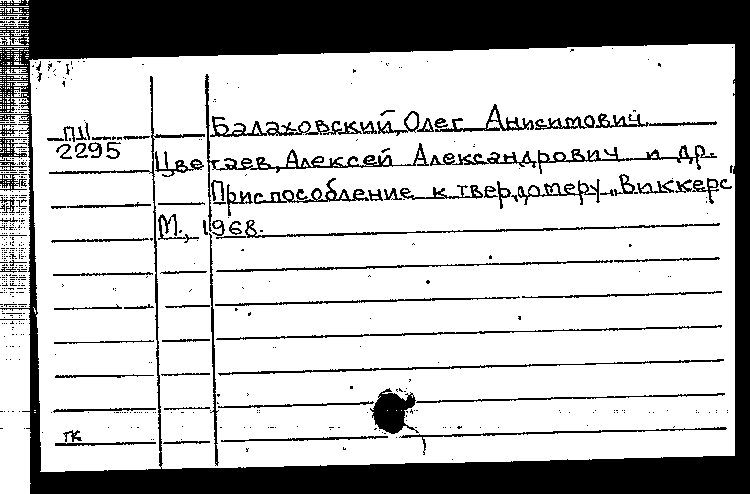 П11 Балаховский, Олег Анисимович
2295 Цветаев, Алексей Александрович и др.
Приспособление к твердомеру „Виккерс"
М., 1968.
ТК